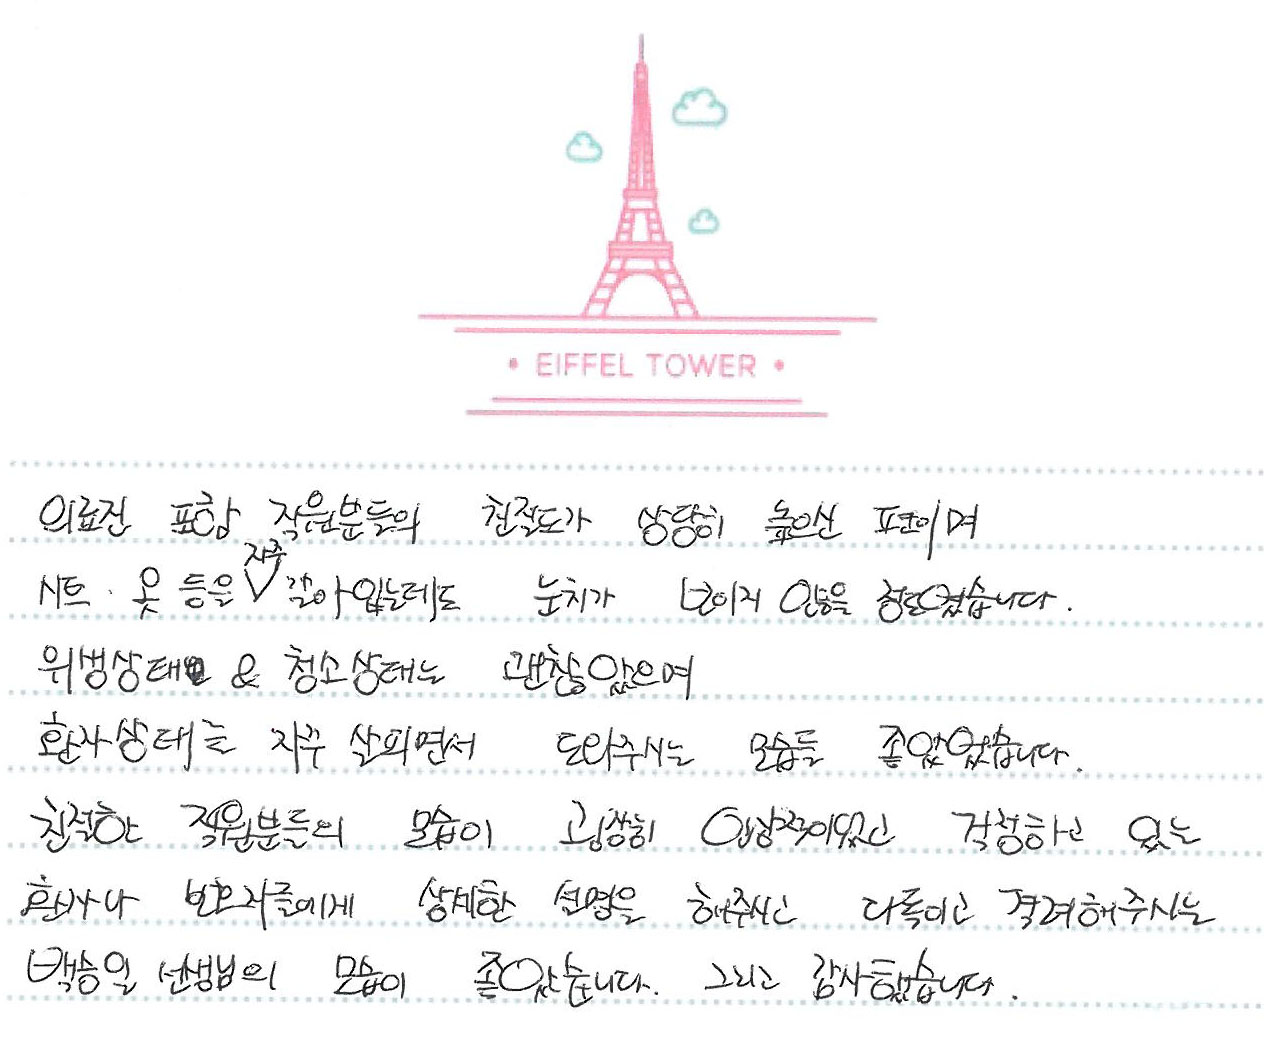 • EIFFEL TOWER •
의료진 포함 직원분들의 친절도가 상당히 높으신 편이며
시트·옷 등은 자주 갈아입는데도 눈치가 보이지 않을 정도였습니다.
위생상태 & 청소상태는 괜찮았으며
환자상태를 자꾸 살피면서 도와주시는 모습들 좋았었습니다.
친절한 직원분들의 모습이 굉장히 인상적이였고 걱정하고 있는
환자나 보호자들에게 상세한 설명을 해주시고 다독이고 격려해주시는
백승일 선생님의 모습이 좋았습니다. 그리고 감사했습니다.